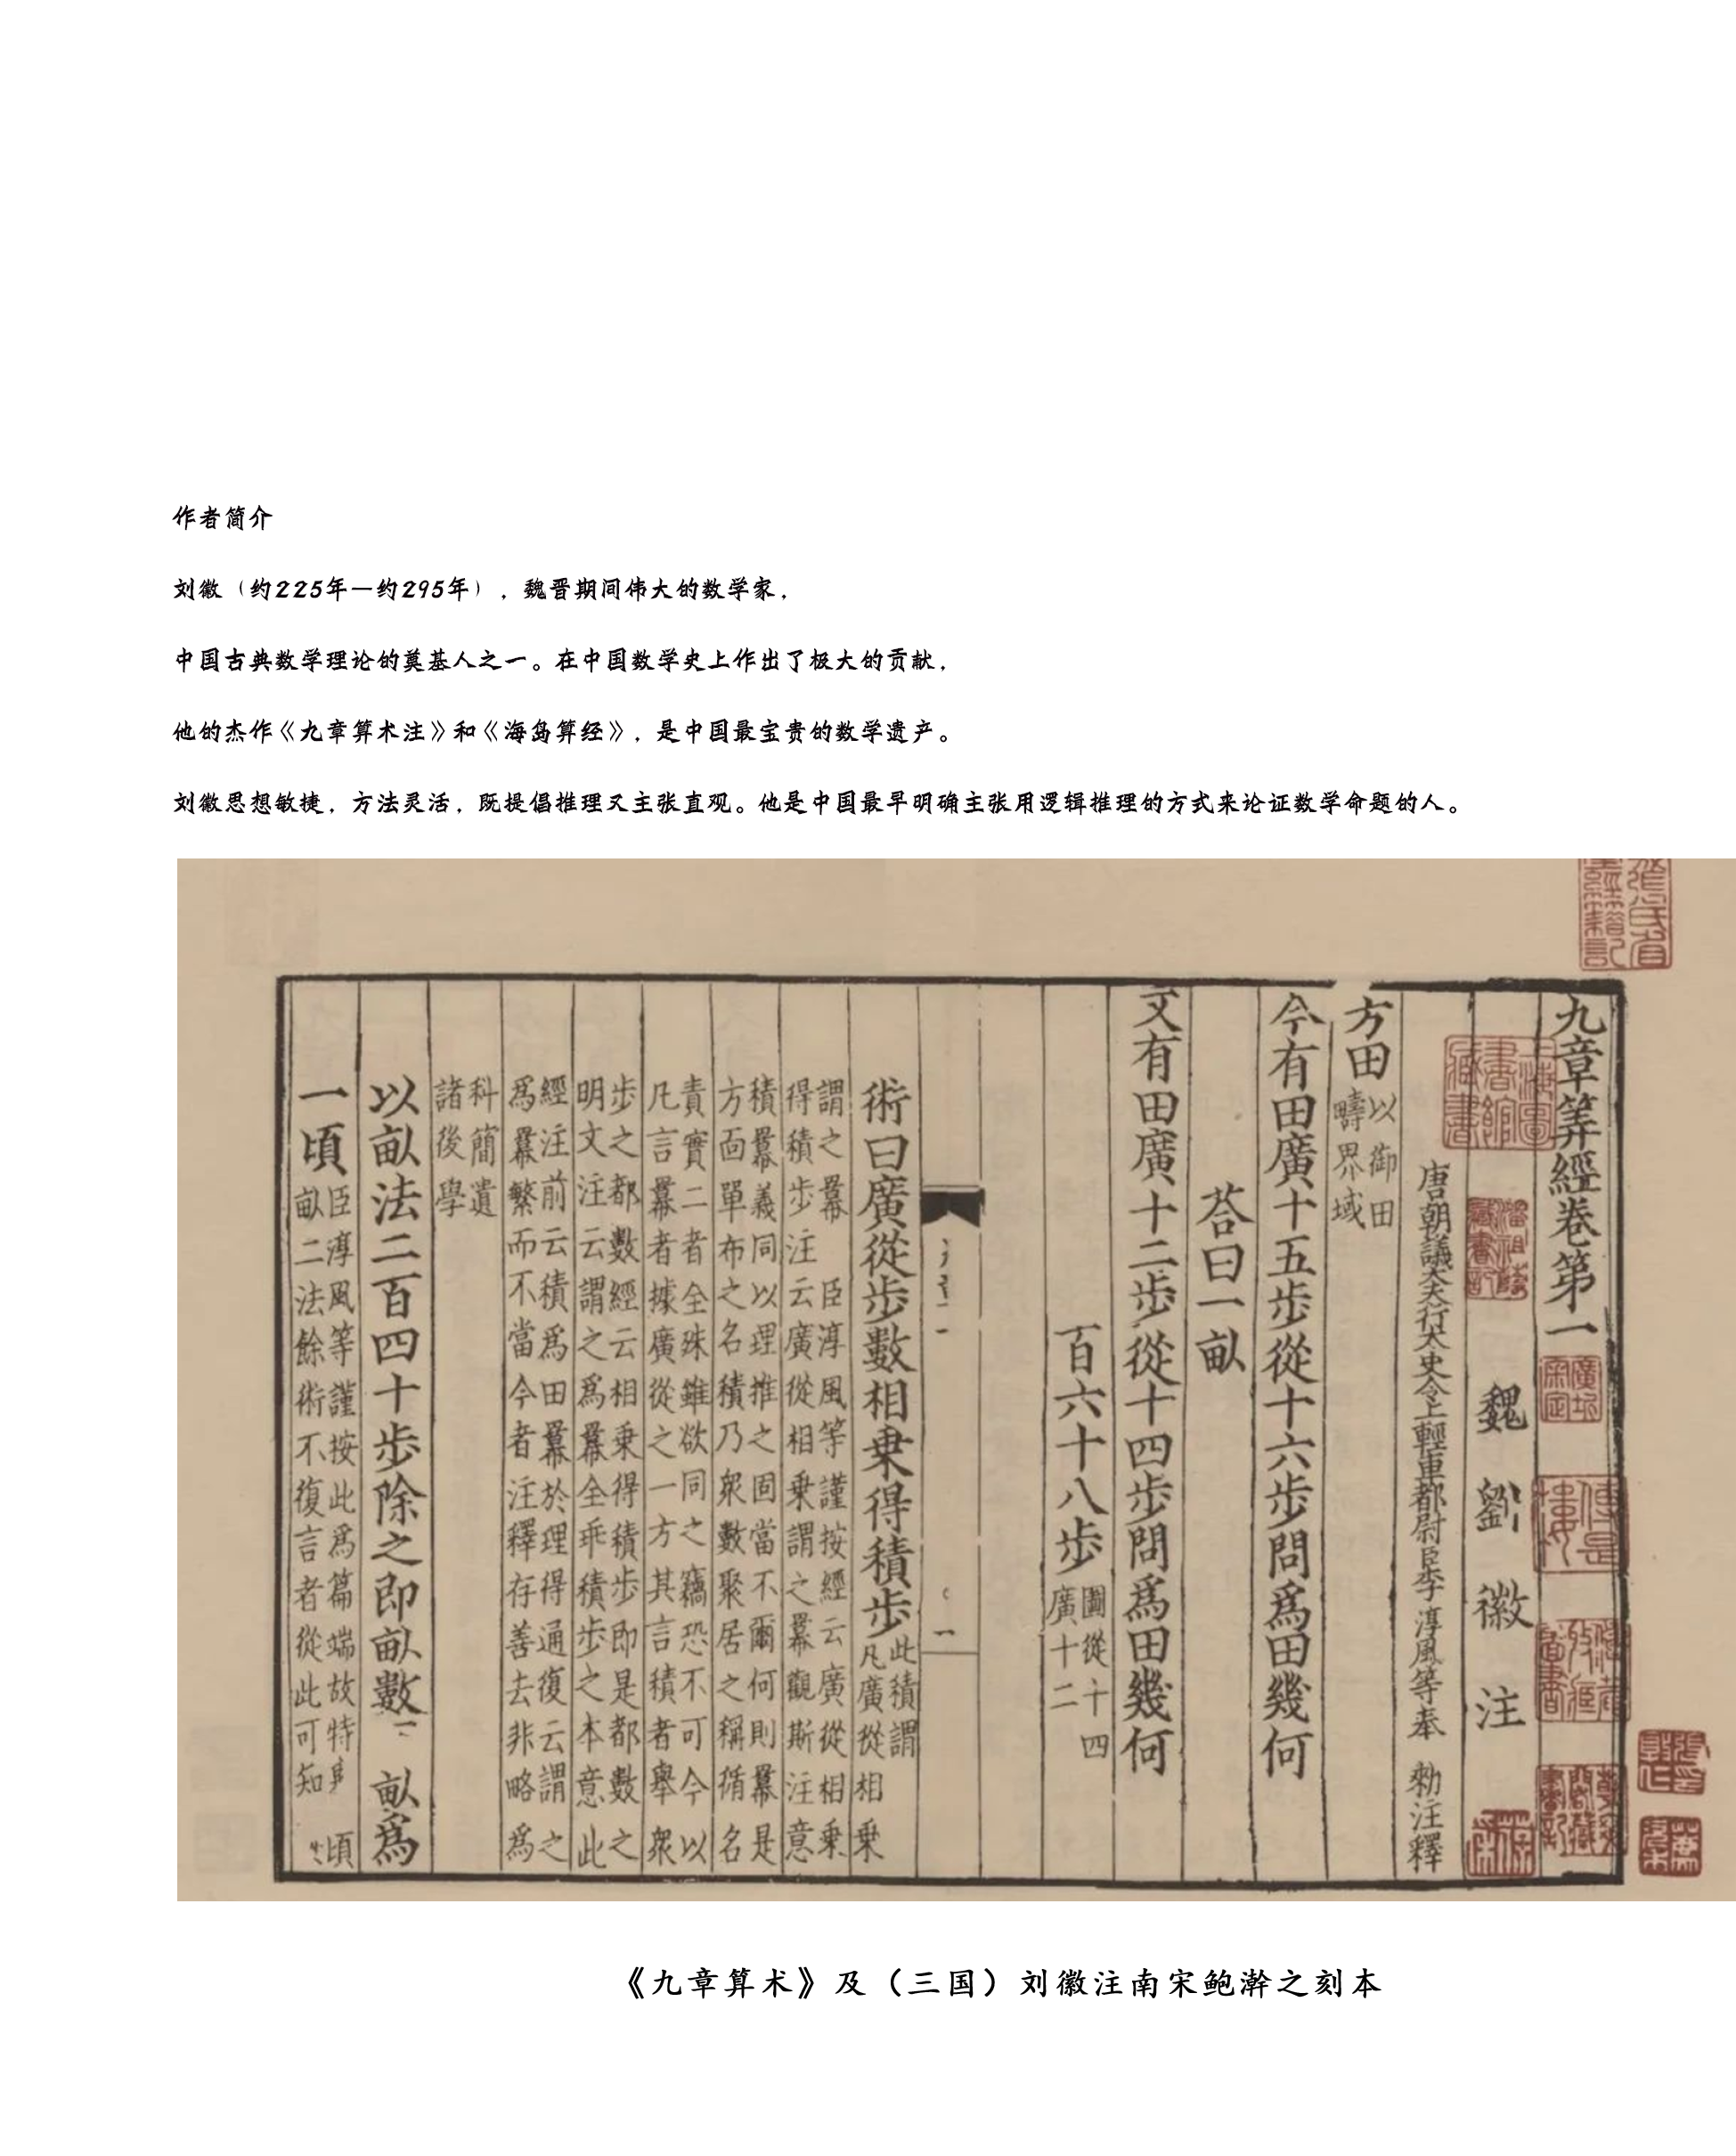 作者简介
刘徽（约225年—约295年），魏晋期间伟大的数学家，
中国古典数学理论的奠基人之一。在中国数学史上作出了极大的贡献，
他的杰作《九章算术注》和《海岛算经》，是中国最宝贵的数学遗产。
刘徽思想敏捷，方法灵活，既提倡推理又主张直观。他是中国最早明确主张用逻辑推理的方式来论证数学命题的人。
九章筭經卷第一
魏劉徽注
唐朝議大夫行太史令上輕車都尉臣李淳風等奉勑注釋
方田以御田疇界域
今有田廣十五步從十六步問爲田幾何
荅曰一畝
又有田廣十二步從十四步問爲田幾何
百六十八步圖從十四廣十二
術曰廣從步數相乗得積步此積謂凡廣從相乗
謂之冪 臣淳風等謹按經云廣從相乗
得積步注云廣從相乗謂之冪觀斯注意
積冪義同以理推之固當不爾何則冪是
方面單布之名積乃衆數聚居之稱循名
責實二者全殊雖欲同之竊恐不可今以
凡言冪者據廣從之一方其言積者舉衆
步之都數經云相乗得積步即是都數之
明文注云謂之爲冪全乖積步之本意此
經注前云積爲田冪於理得通復云謂之
爲冪繁而不當今者注釋存善去非略爲
科簡遺
諸後學
以畝法二百四十步除之即畝數 畝爲
一頃臣淳風等謹按此爲篇端故特 頃
畝二法餘術不復言者從此可知
《九章算术》及（三国）刘徽注南宋鲍澣之刻本